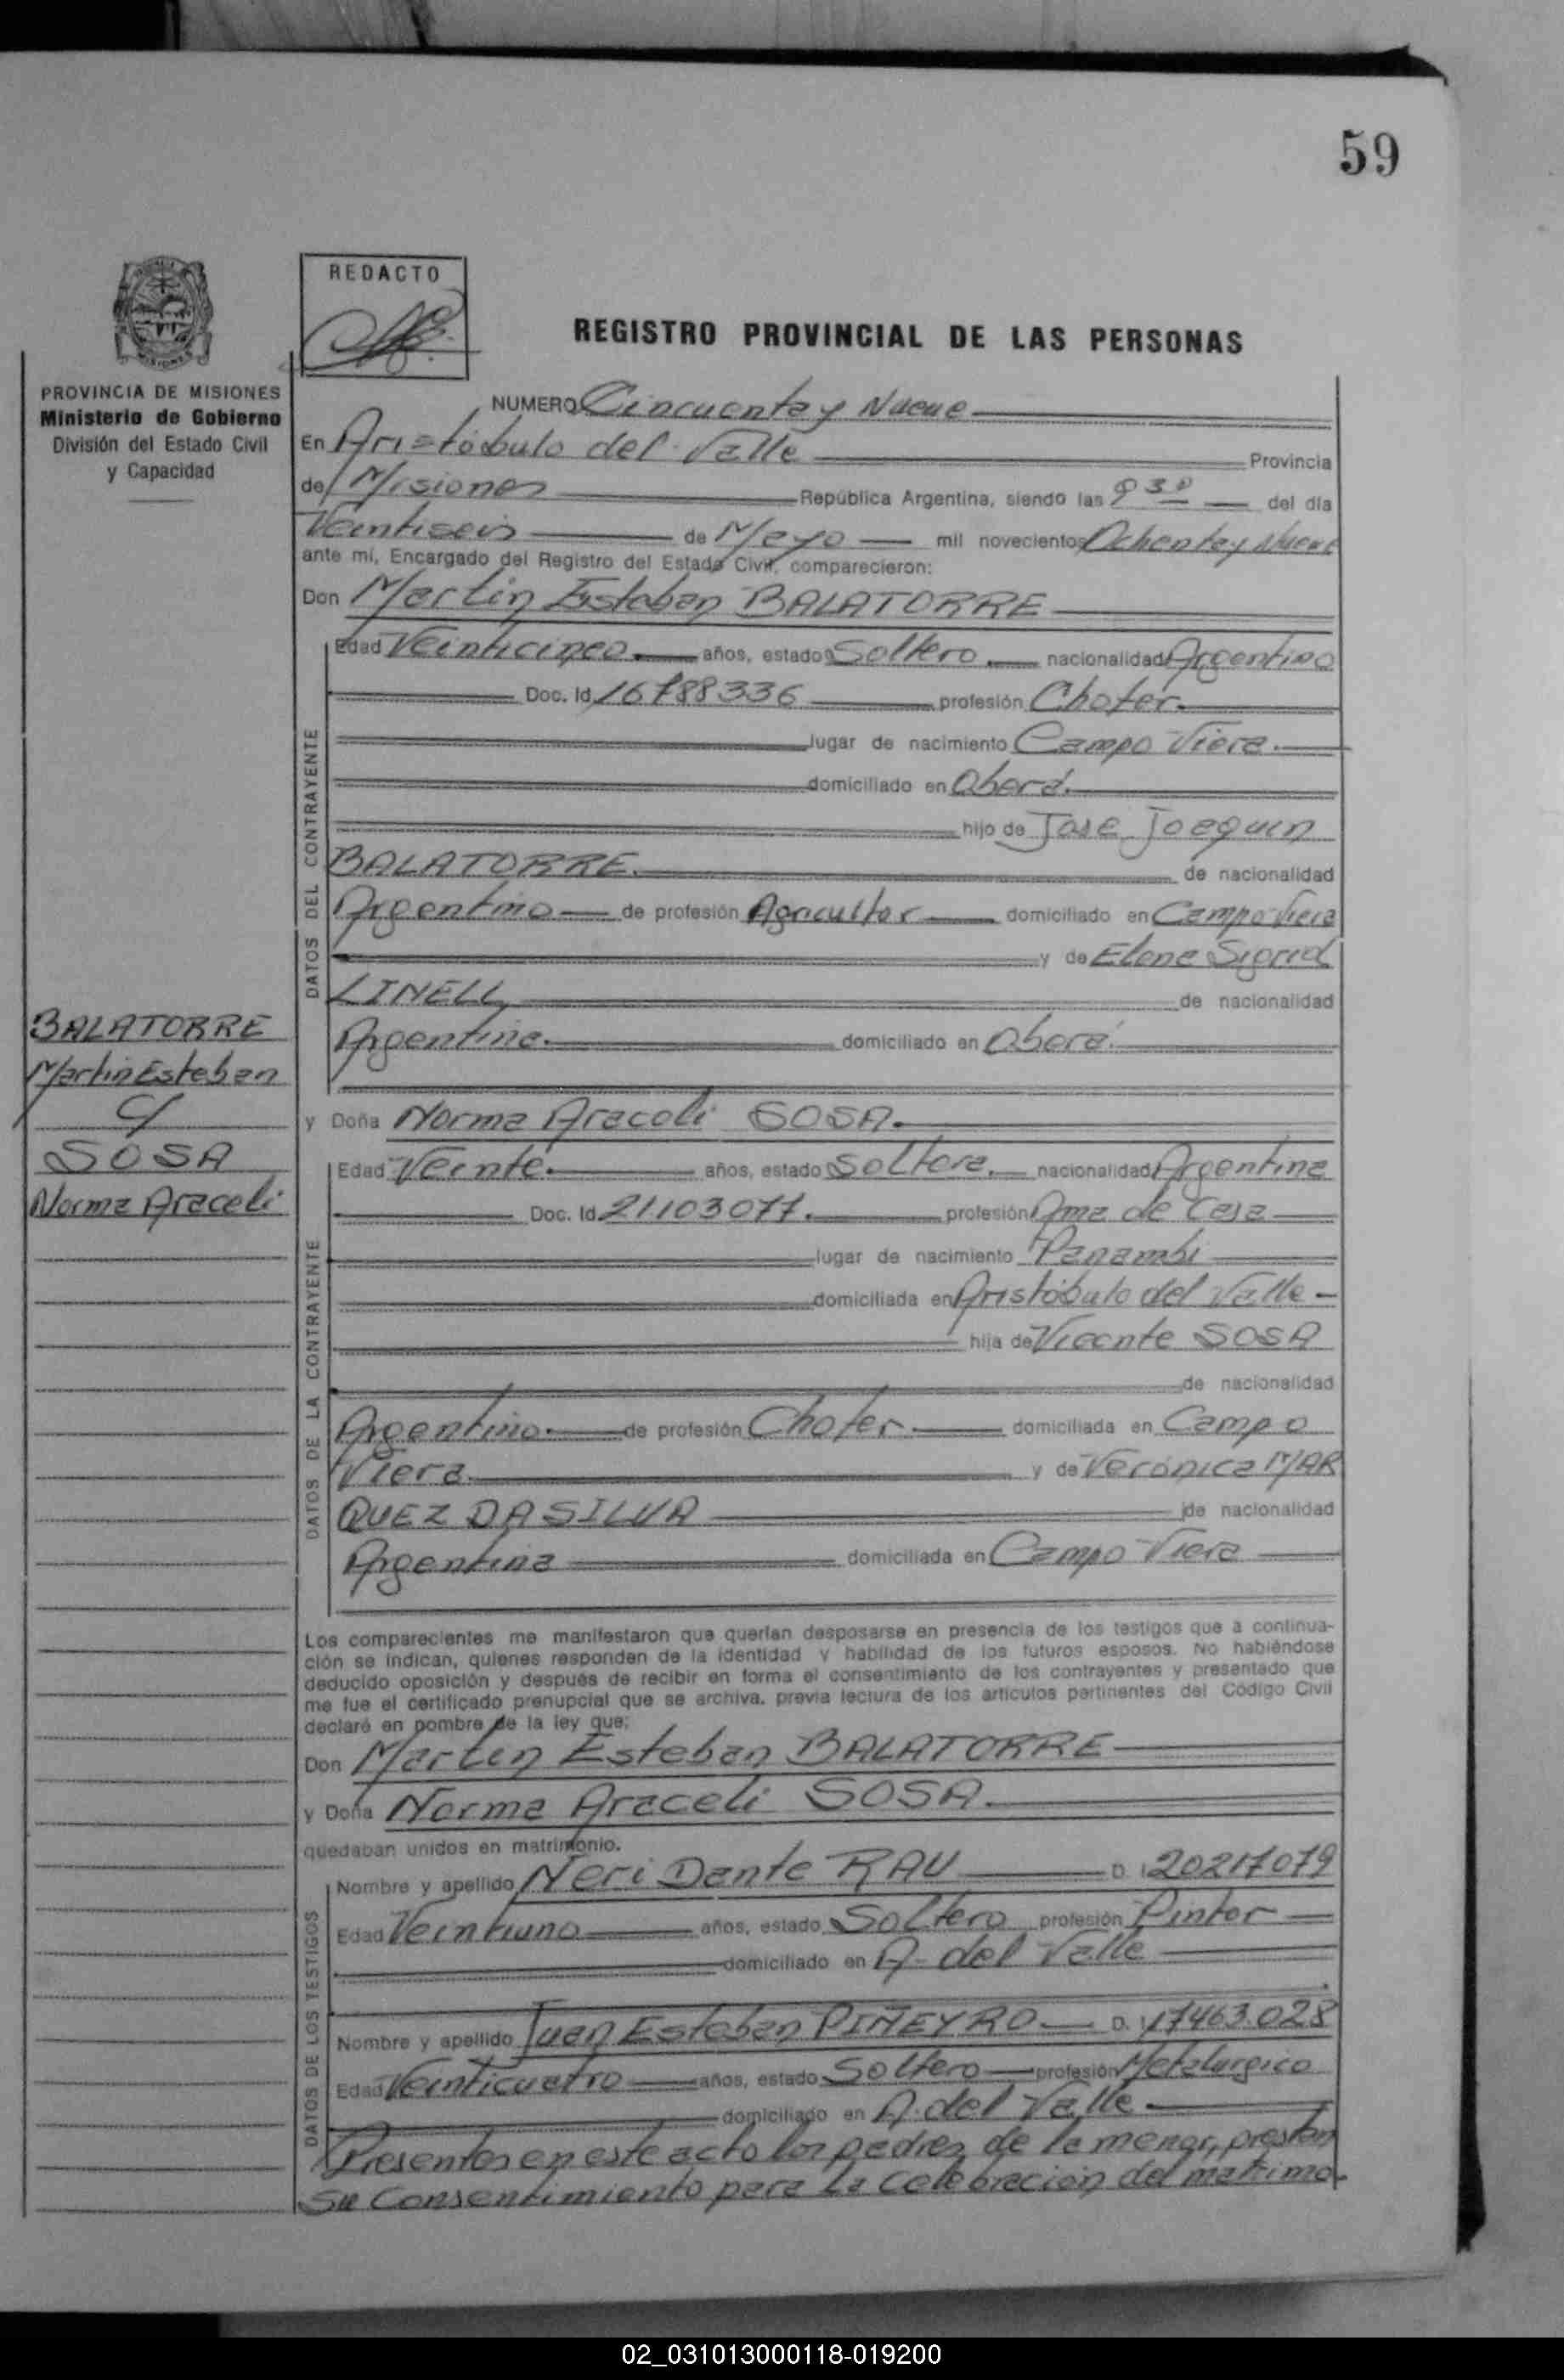 59
REDACTO
REGISTRO PROVINCIAL DE LAS PERSONAS
PROVINCIA DE MISIONES
Ministerio de Gobierno
División del Estado Civil
y Capacidad
NUMERO Cincuenta y Nueve
En Aristóbulo del Valle Provincia
de Misiones República Argentina, siendo las 9 30 del día
Veintiseis de Mayo mil novecientos Ochenta y Nueve
ante mí, Encargado del Registro del Estado Civil, comparecieron:
Don Martin Esteban BALATORRE
Edad Veinticinco años, estado Soltero nacionalidad Argentino
Doc. Id. 16788336 profesión Chofer.
lugar de nacimiento Campo Viera.
domiciliado en Oberá.
hijo de José Joaquin
BALATORRE. de nacionalidad
Argentino de profesión Agricultor domiciliado en Campo Viera
y de Elena Sigrid
LINELL de nacionalidad
Argentina. domiciliado en Oberá.
DATOS DEL CONTRAYENTE
BALATORRE
Martin Esteban
c/
SOSA
Norma Araceli
y Doña Norma Araceli SOSA.
Edad Veinte. años, estado Soltera. nacionalidad Argentina
Doc. Id. 21103077. profesión Ama de Casa
lugar de nacimiento Panambí
domiciliada en Aristóbulo del Valle
hija de Vicente SOSA
de nacionalidad
Argentino. de profesión Chofer. domiciliada en Campo
Viera. y de Verónica MAR
QUEZ DA SILVA de nacionalidad
Argentina domiciliada en Campo Viera
DATOS DE LA CONTRAYENTE
Los comparecientes me manifestaron que querían desposarse en presencia de los testigos que a continua-
ción se indican, quienes responden de la identidad y habilidad de los futuros esposos. No habiéndose
deducido oposición y después de recibir en forma el consentimiento de los contrayentes y presentado que
me fue el certificado prenupcial que se archiva, previa lectura de los artículos pertinentes del Código Civil
declaré en nombre de la ley que:
Don Martin Esteban BALATORRE
y Doña Norma Araceli SOSA.
quedaban unidos en matrimonio.
Nombre y apellido Neri Dante RAU D. I. 20217079
Edad Veintiuno años, estado Soltero profesión Pintor
domiciliado en A. del Valle
Nombre y apellido Juan Esteban PIÑEYRO D. I. 17463.028
Edad Veinticuatro años, estado Soltero profesión Metalurgico
domiciliado en A. del Valle
DATOS DE LOS TESTIGOS
Presentes en este acto los padres de la menor, prestan
su Consentimiento para la celebración del matrimo-
02_031013000118-019200